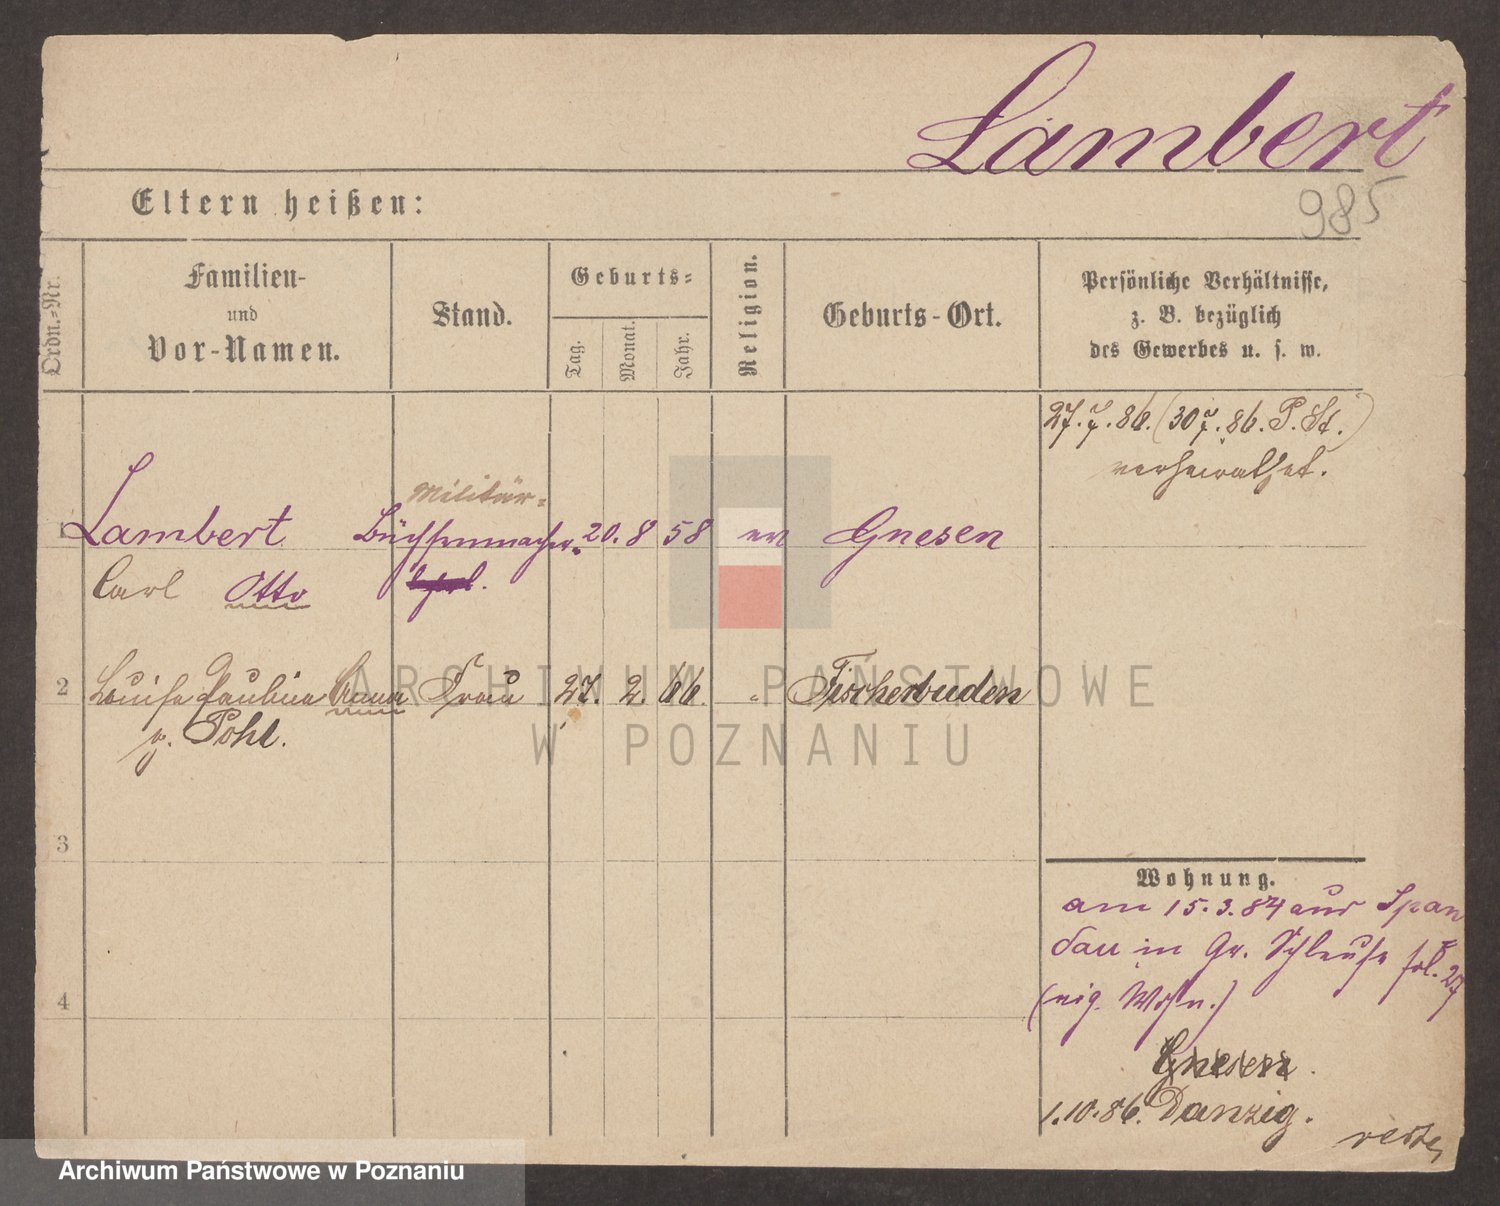 Lambert
985
Eltern heißen:
Ordn.-Nr.
Familien-
und
Vor-Namen.
Stand.
Geburts-
Tag.
Monat.
Jahr.
Religion.
Geburts-Ort.
Persönliche Verhältnisse,
z. B. bezüglich
des Gewerbes u. s. w.
27. 7. 86. (30 7. 86. P. St.)
verheirathet.
Militär-
1 Lambert Büchsenmacher- 20. 8 58 ev Gnesen
Carl Otto
2 Louise Pauline Frau 27. 2. 66. " Fischerbuden
g. Pohl.
3
4
Wohnung.
am 15. 3. 84 aus Span
dau in Gr. Schleuse 27
(eig. Wohn.)
Gnesen.
1.10.86. Danzig.
ARCHIWUM PAŃSTWOWE
W POZNANIU
Archiwum Państwowe w Poznaniu